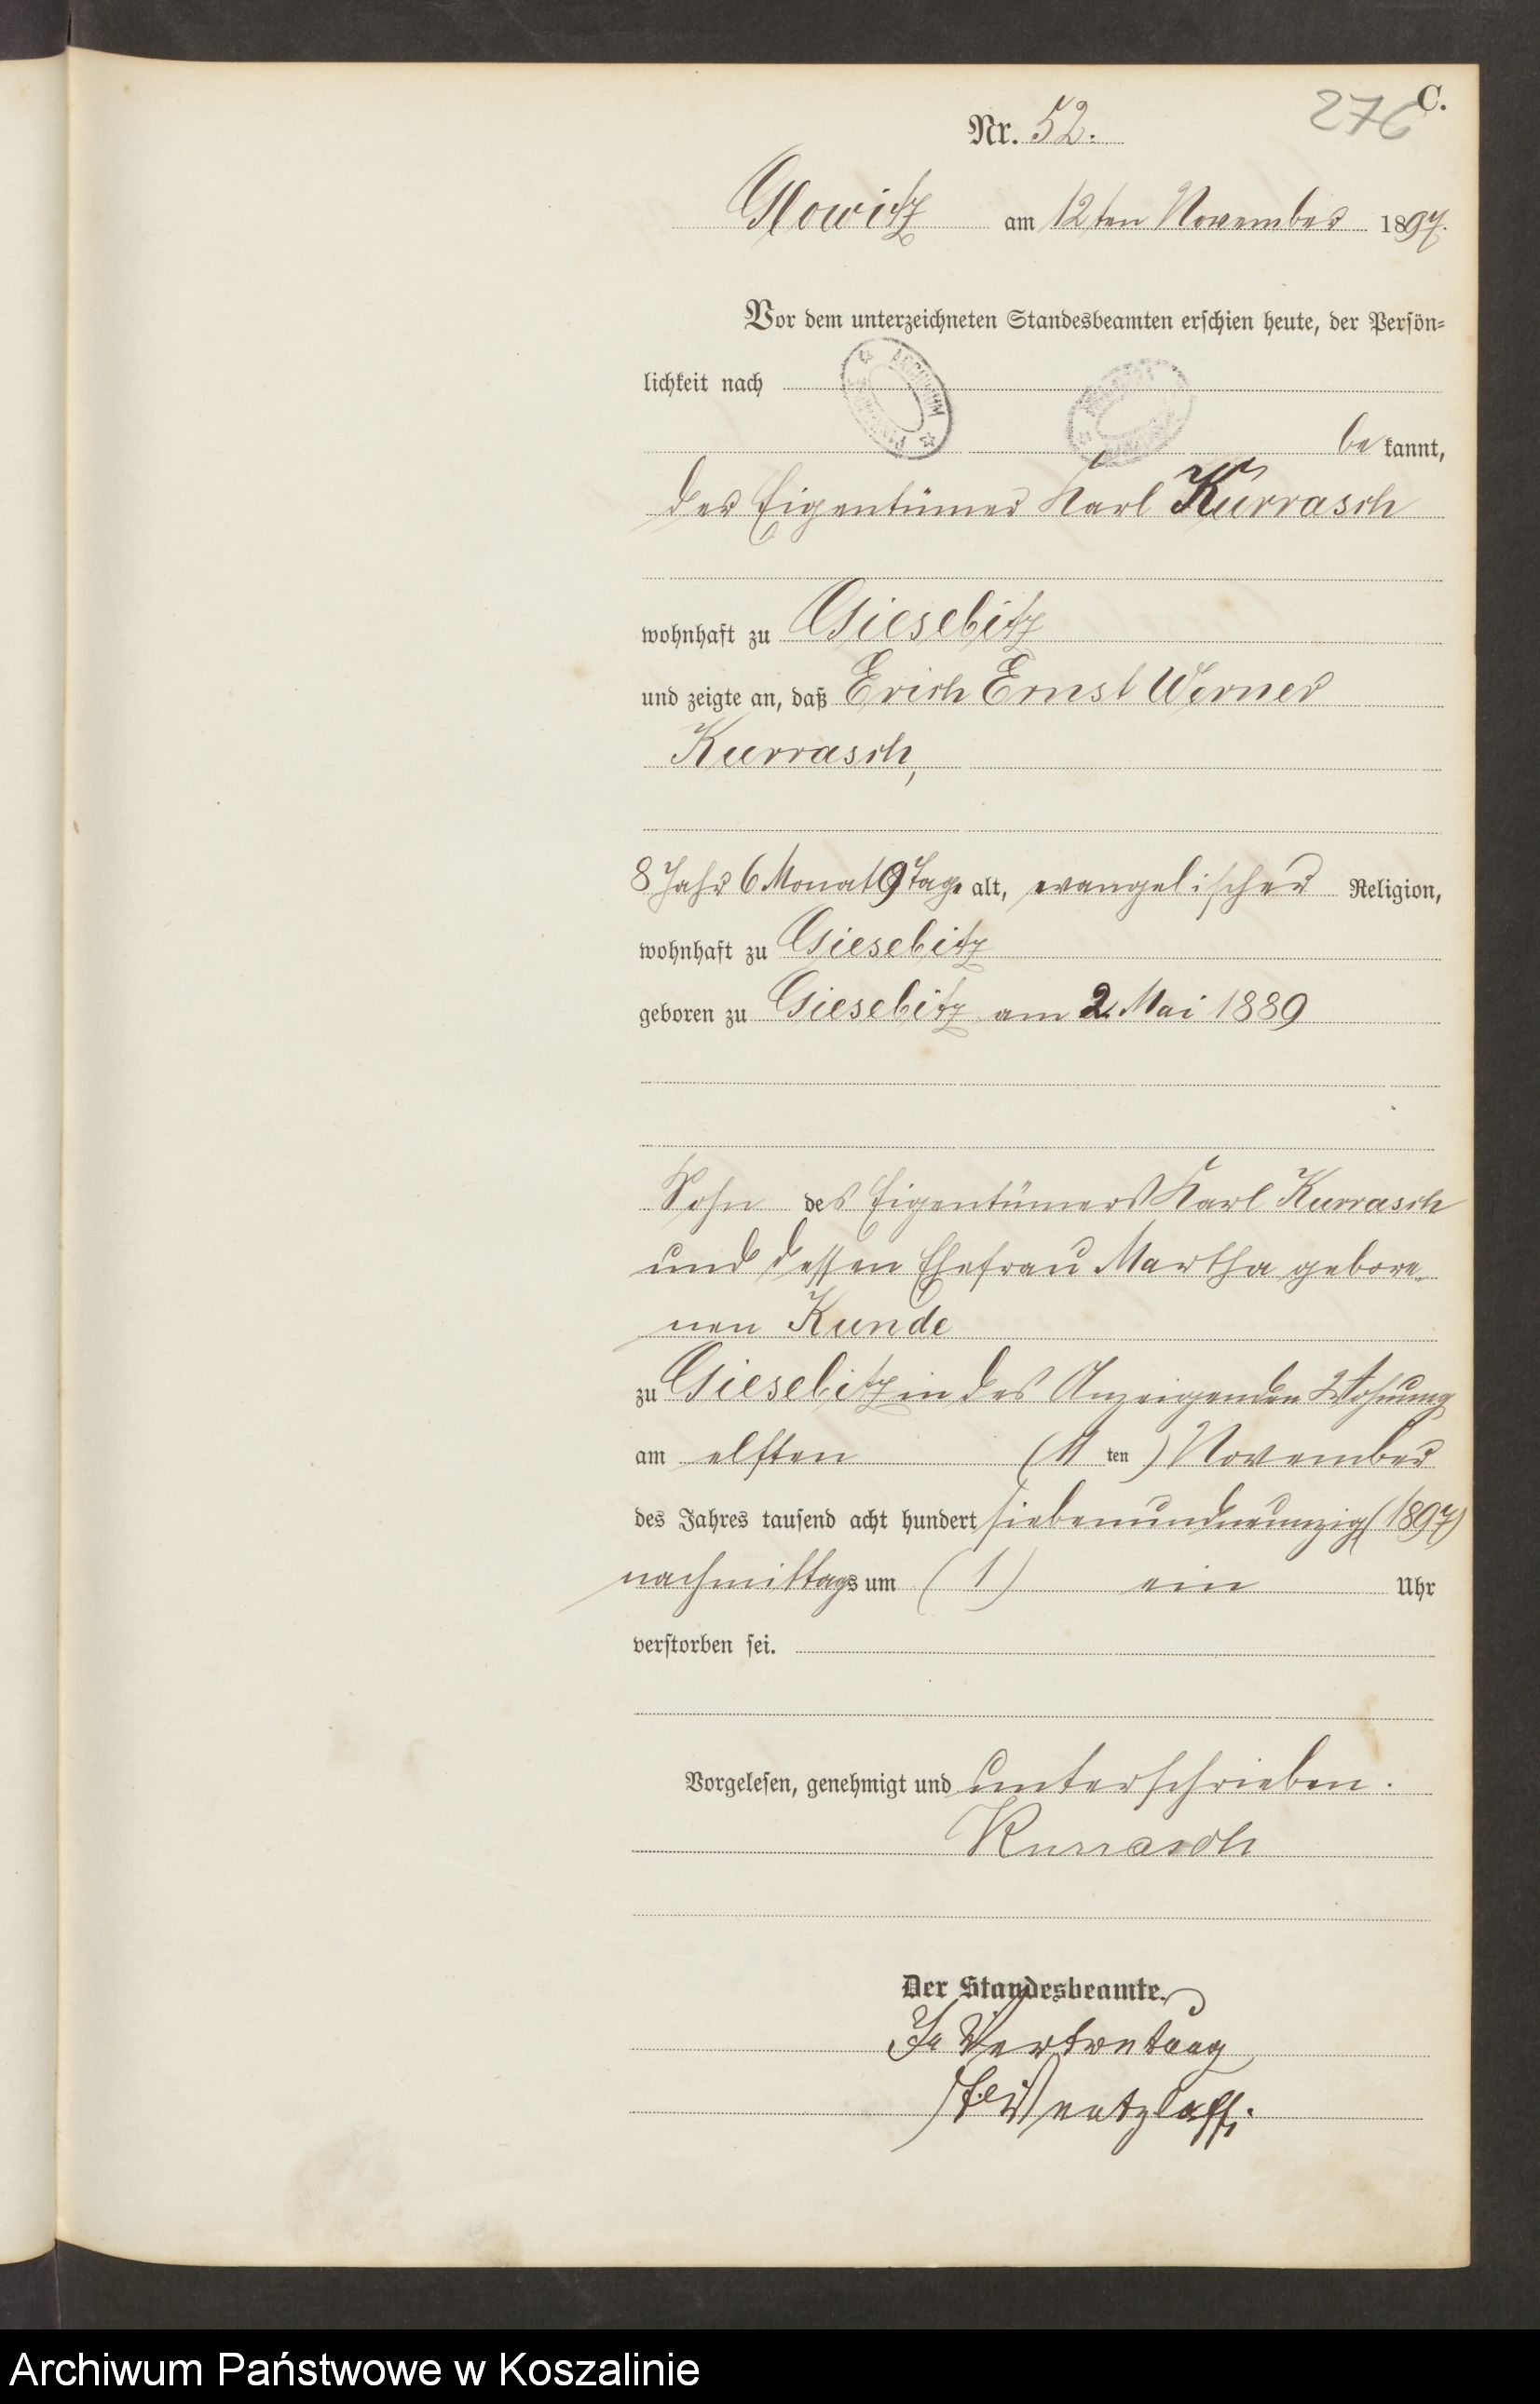 C.
276
Nr. 52.
Glowitz am 12ten November 1897.
Vor dem unterzeichneten Standesbeamten erschien heute, der Persön-
lichkeit nach
ARCHIWUM
be kannt,
der Eigentümer Karl Kurrasch
wohnhaft zu Giesebitz
und zeigte an, daß Erich Ernst Werner
Kurrasch,
8 Jahr 6 Monat 9 Tage alt, evangelischer Religion,
wohnhaft zu Giesebitz
geboren zu Giesebitz am 2. Mai 1889
Sohn des Eigentümers Karl Kurrasch
und dessen Ehefrau Martha gebore-
nen Kunde
zu Giesebitz in des Anzeigenden Wohnung
am elften (11 ten) November
des Jahres tausend acht hundert siebenundneunzig (1897)
nachmittags um (1) ein Uhr
verstorben sei.
Vorgelesen, genehmigt und unterschrieben.
Kurrasch
Der Standesbeamte.
In Vertretung
Wentzlaff.
Archiwum Państwowe w Koszalinie